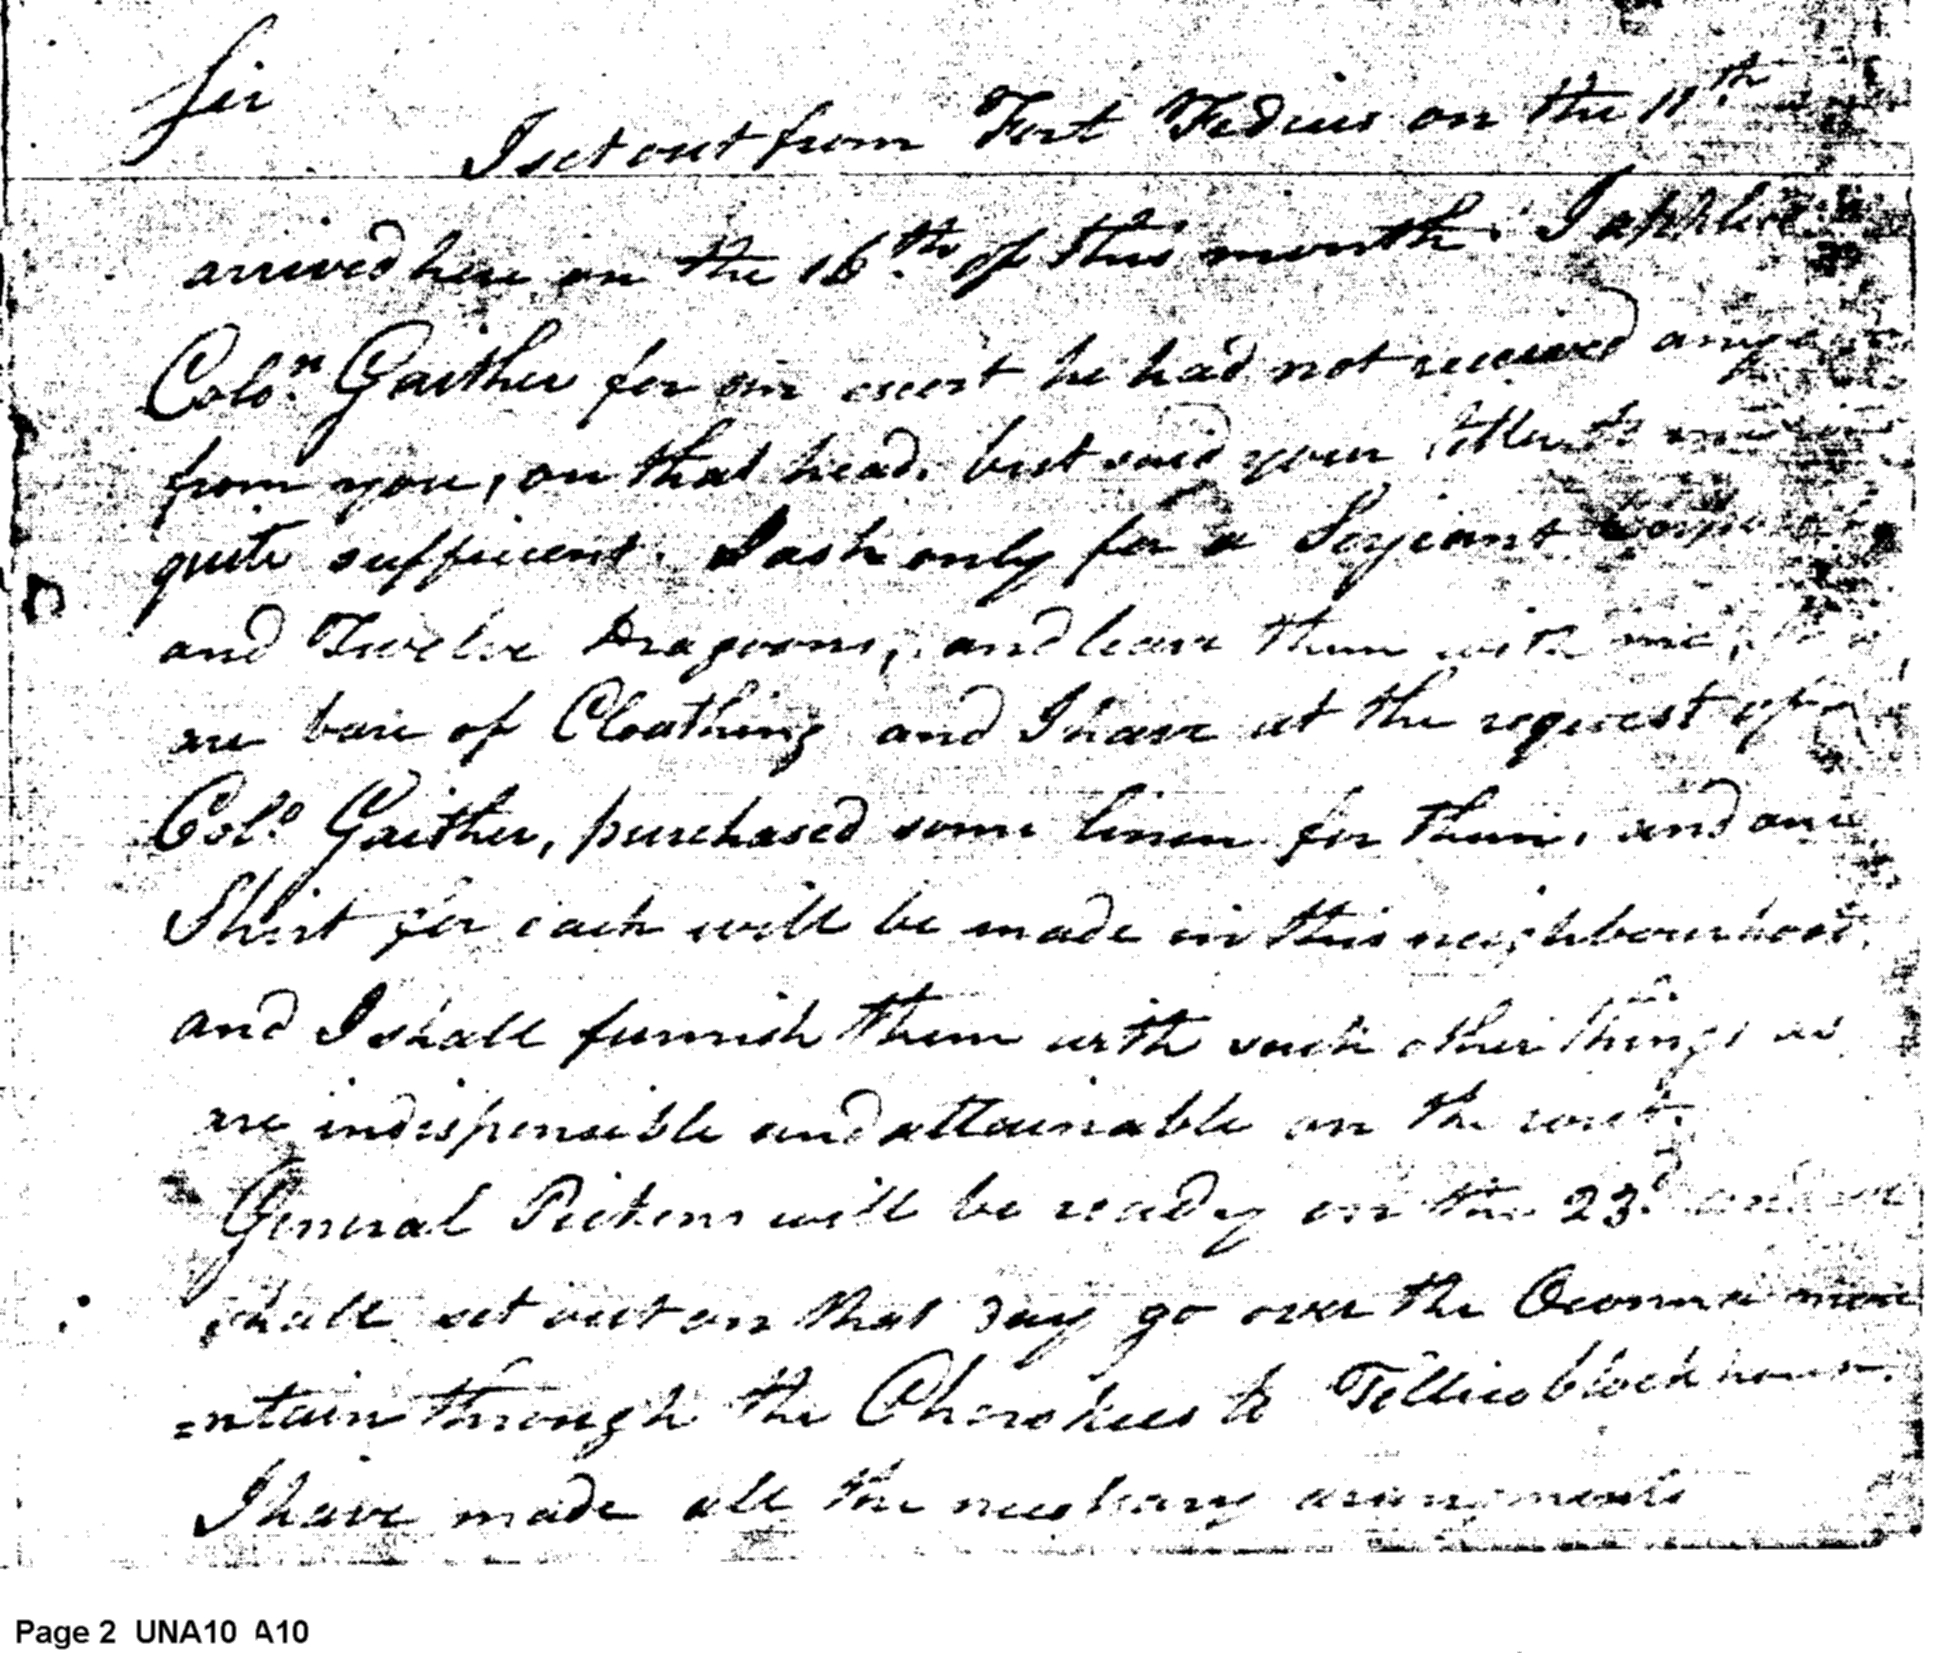 Sir
I set out from Fort Fidius on the 11th
arrived here on the 16th of this month. I applied
Colon. Gaither for an escort he had not received any
from you, on that head, but said your letter to me
quite sufficient. I ask only for a Serjeant
and Twelve Dragoons, and leave them with me,
are bare of Cloathing and I have at the request of
Colo. Gaither, purchased some linen for them, and one
Shirt for each will be made in this neighbourhood,
and I shall furnish them with such other things as
are indispensible and attainable on the rout.
General Pickens will be ready on the 23d. and we
shall set out on that day go over the Oconna mou
=ntain through the Cherokees to Tellico blockhouse.
I have made all the necessary arangments
Page 2 UNA10 A10